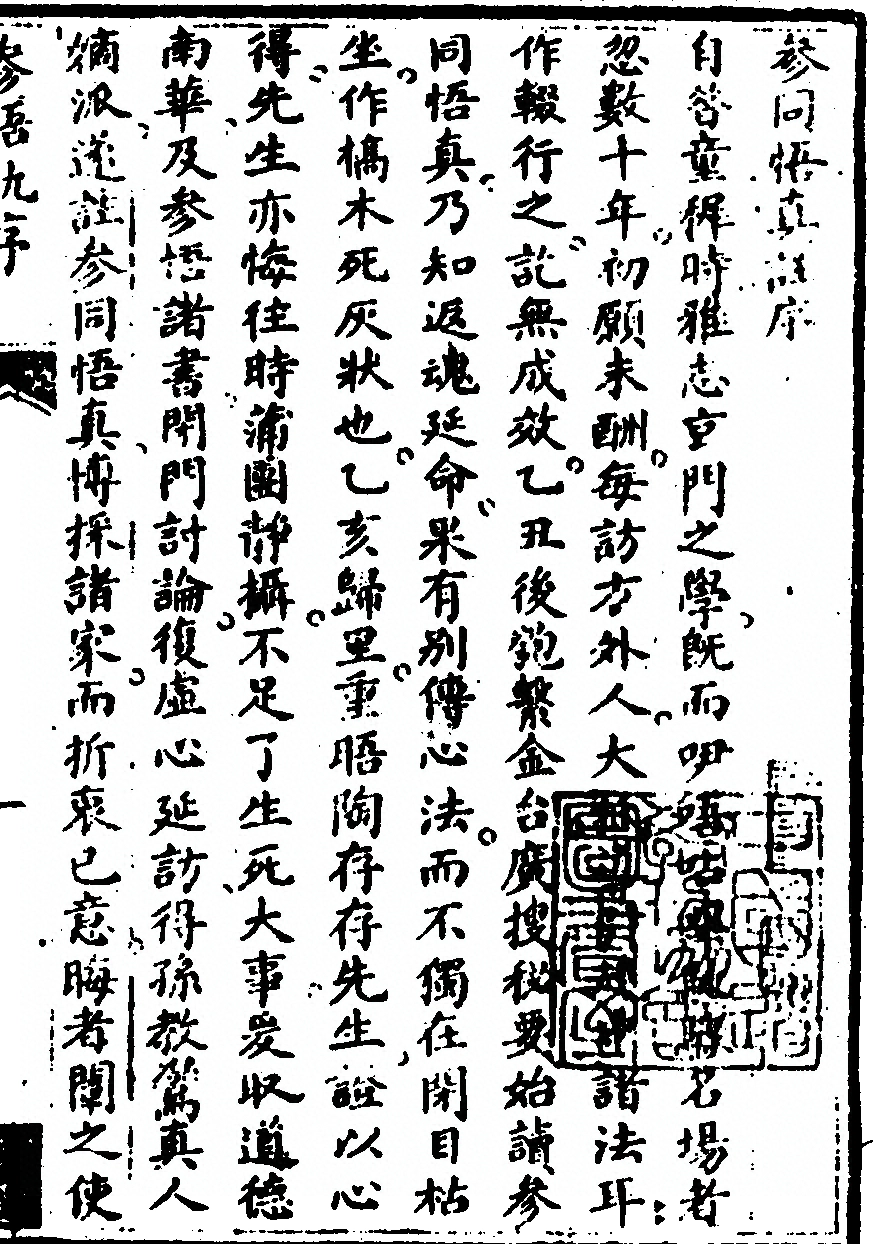 參同悟真註序
自昔童穉時雅志玄門之學既而吚唔名場者
忽數十年初願未酬每訪方外人大諸法耳
作輟行之訖無成效乙丑後匏繫金台廣搜秘要始讀參
同悟真乃知返魂延命果有別傳心法而不獨在閉目枯
坐作槁木死灰狀也乙亥歸里重晤陶存存先生證以心
得先生亦悔往時蒲團靜攝不足了生死大事爰取道德
南華及參悟諸書閉門討論復虛心延訪得孫教鸞真人
嫡派遂註參同悟真博採諸家而折衷已意晦者闡之使